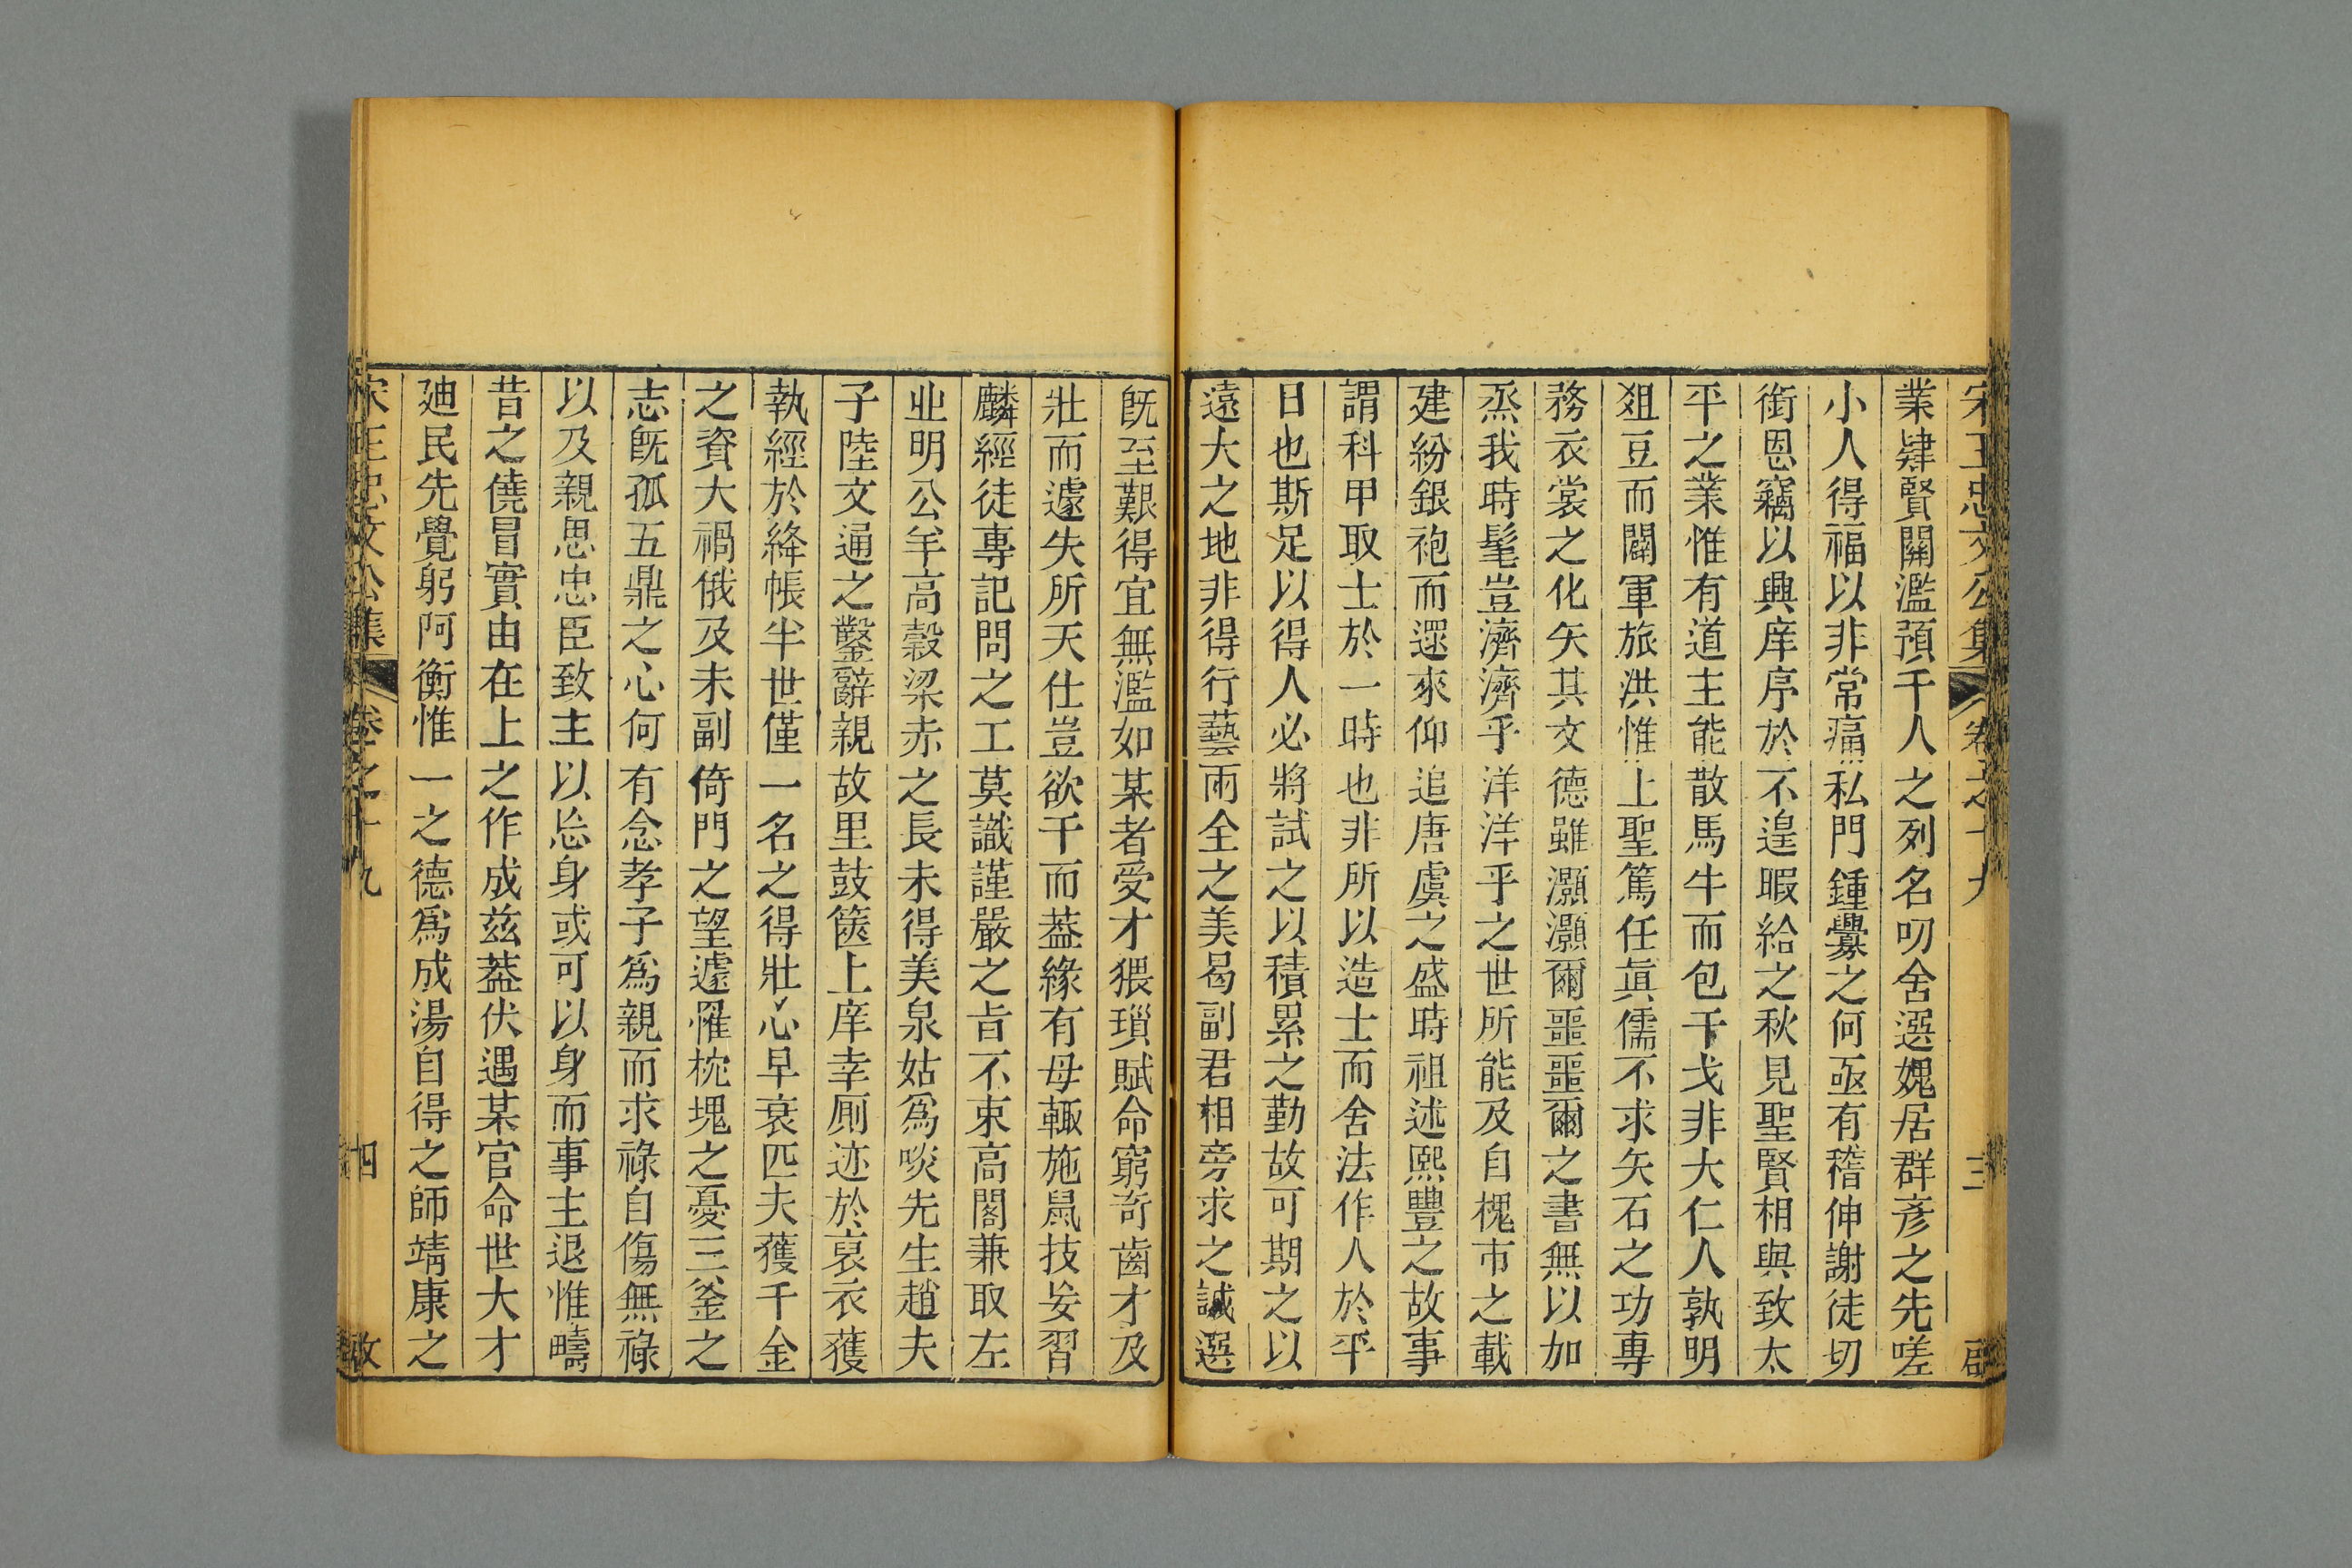 宋王忠文公集 卷之十九 三 啟
業肄賢關濫預千人之列名叨舍選媿居群彥之先嗟
小人得福以非常痛私門鍾釁之何亟有稽伸謝徒切
銜恩竊以興庠序於不遑暇給之秋見聖賢相與致太
平之業惟有道主能散馬牛而包干戈非大仁人孰明
俎豆而闢軍旅洪惟上聖篤任眞儒不求矢石之功專
務衣裳之化矢其文德雖灝灝爾噩噩爾之書無以加
烝我時髦豈濟濟乎洋洋乎之世所能及自槐市之載
建紛銀袍而還來仰追唐虞之盛時祖述熙豐之故事
謂科甲取士於一時也非所以造士而舍法作人於平
日也斯足以得人必將試之以積累之勤故可期之以
遠大之地非得行藝兩全之美曷副君相旁求之誠選
旣至艱得宜無濫如某者受才猥瑣賦命窮奇齒才及
壯而遽失所天仕豈欲干而葢緣有母輒施鼠技妄習
麟經徒專記問之工莫識謹嚴之旨不束高閣兼取左
丘明公羊高榖梁赤之長未得美泉姑爲啖先生趙夫
子陸文通之鑿辭親故里鼓篋上庠幸厠迹於裒衣獲
執經於絳帳半世僅一名之得壯心早衰匹夫獲千金
之資大禍俄及未副倚門之望遽罹枕塊之憂三釜之
志旣孤五鼎之心何有念孝子爲親而求祿自傷無祿
以及親思忠臣致主以忘身或可以身而事主退惟疇
昔之僥冒實由在上之作成茲葢伏遇某官命世大才
廸民先覺躬阿衡惟一之德爲成湯自得之師靖康之
宋王忠文公集 卷之十九 四 啟